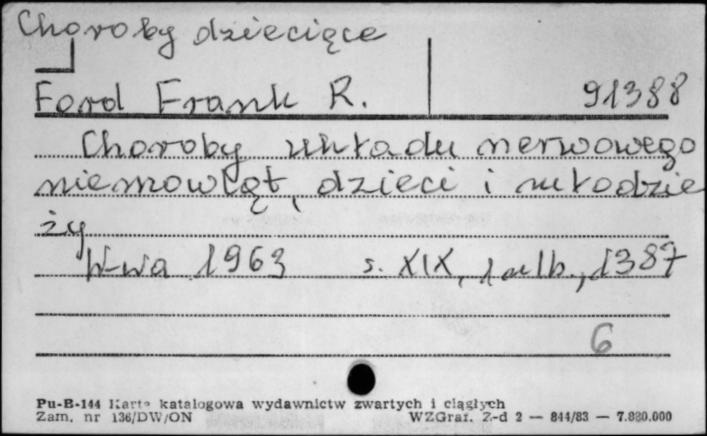 Choroby dziecięce
Ford Frank R. 91388
Choroby układu nerwowego
niemowląt, dzieci i młodzie
ży
W-wa 1963 s. XIX, 1 nlb., 1387
6
Pu-B-144 Karta katalogowa wydawnictw zwartych i ciągłych
Zam. nr 136/DW/ON WZGraf. Z-d 2 — 844/83 — 7.820.000